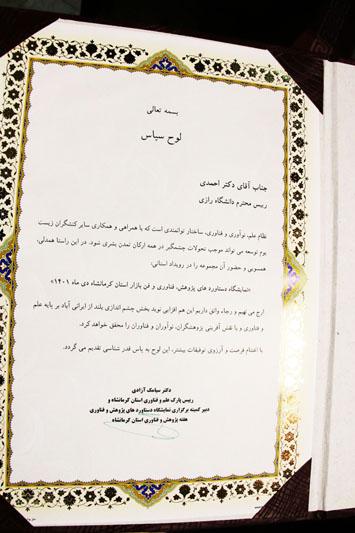 بسمه تعالی
لوح سپاس
جناب آقای دکتر احمدی
رییس محترم دانشگاه رازی
نظام علم، نوآوری و فناوری، ساختار توانمندی است که با همراهی و همکاری سایر کنشگران زیست
بوم توسعه می تواند موجب تحولات چشمگیر در همه ارکان تمدن بشری شود. در این راستا همدلی،
همسویی و حضور آن مجموعه را در رویداد استانی:
«نمایشگاه دستاورد های پژوهش، فناوری و فن بازار استان کرمانشاه دی ماه ۱۴۰۱»
ارج می نهیم و رجاء واثق داریم این هم افزایی نوید بخش چشم اندازی بلند از ایرانی آباد بر پایه علم
و فناوری و با نقش آفرینی پژوهشگران، نوآوران و فناوران را محقق خواهد کرد.
با اغتنام فرصت و آرزوی توفیقات بیشتر، این لوح به پاس قدر شناسی تقدیم می گردد.
دکتر سیامک آزادی
رییس پارک علم و فناوری استان کرمانشاه و
دبیر کمیته برگزاری نمایشگاه دستاورد های پژوهش و فناوری
هفته پژوهش و فناوری استان کرمانشاه